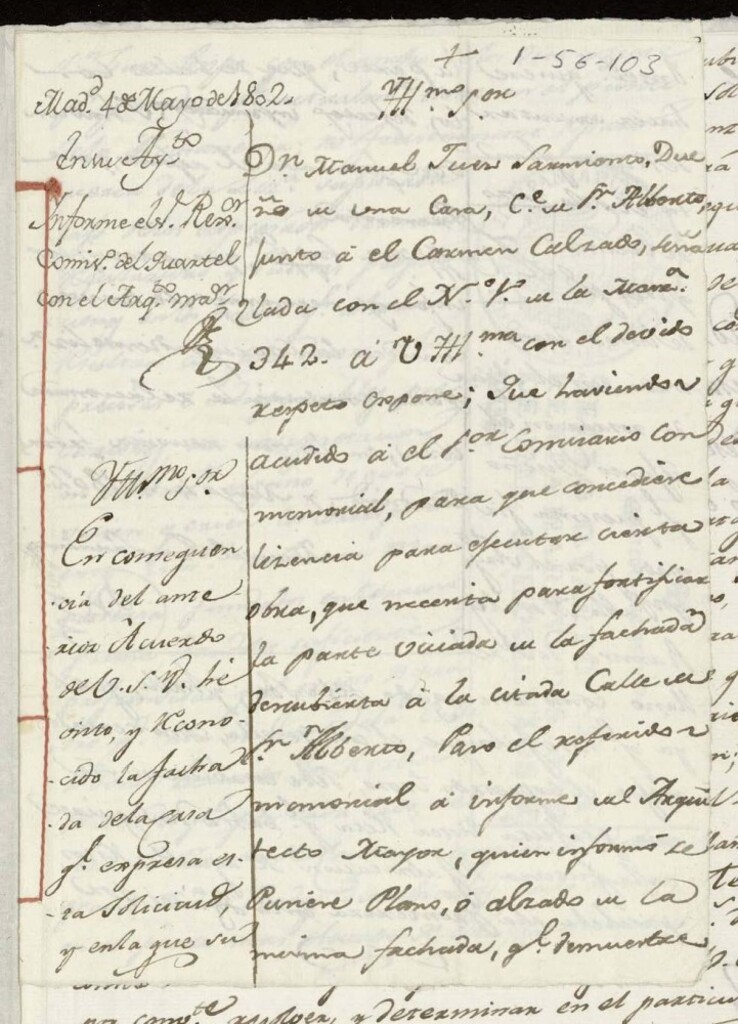 + 1-56-103
Yll.mo S.or
Mad.d 4 de Mayo de 1802.
En su Ay.to
Informe el S. Rex.or
Comis.o del Quartel
con el Arq.to ma.or
D.n Manuel Sarmiento, Due
ño de una Casa, C.e de S.n Alberto,
junto á el Carmen Calzado, seña
lada con el N.o 1.o de la Manz.a
342. á V. Yll.ma con el devido
respeto expone; Que haviendo
acudido á el S.or Comisario con
memorial, para que concediere
lizencia para ejecutar cierta
obra, que necesita para fortificar
la parte viciada de la fachada
descubierta á la citada Calle de
S.n Alberto, Paso el referido
memorial á informe del Arqui
tecto Mayor, quien informó se
Pusiere Plano, ó alzado de la
misma fachada, q.e demuestre
Yll.mo S.or
En conseguen
cia del ante
rior Acuerdo
de V. S. Y. hé
visto, y recono-
cido la facha
da de la Casa
q.e expresa es-
ta Solicitud,
y en la que su
resolver, y determinar en el particu